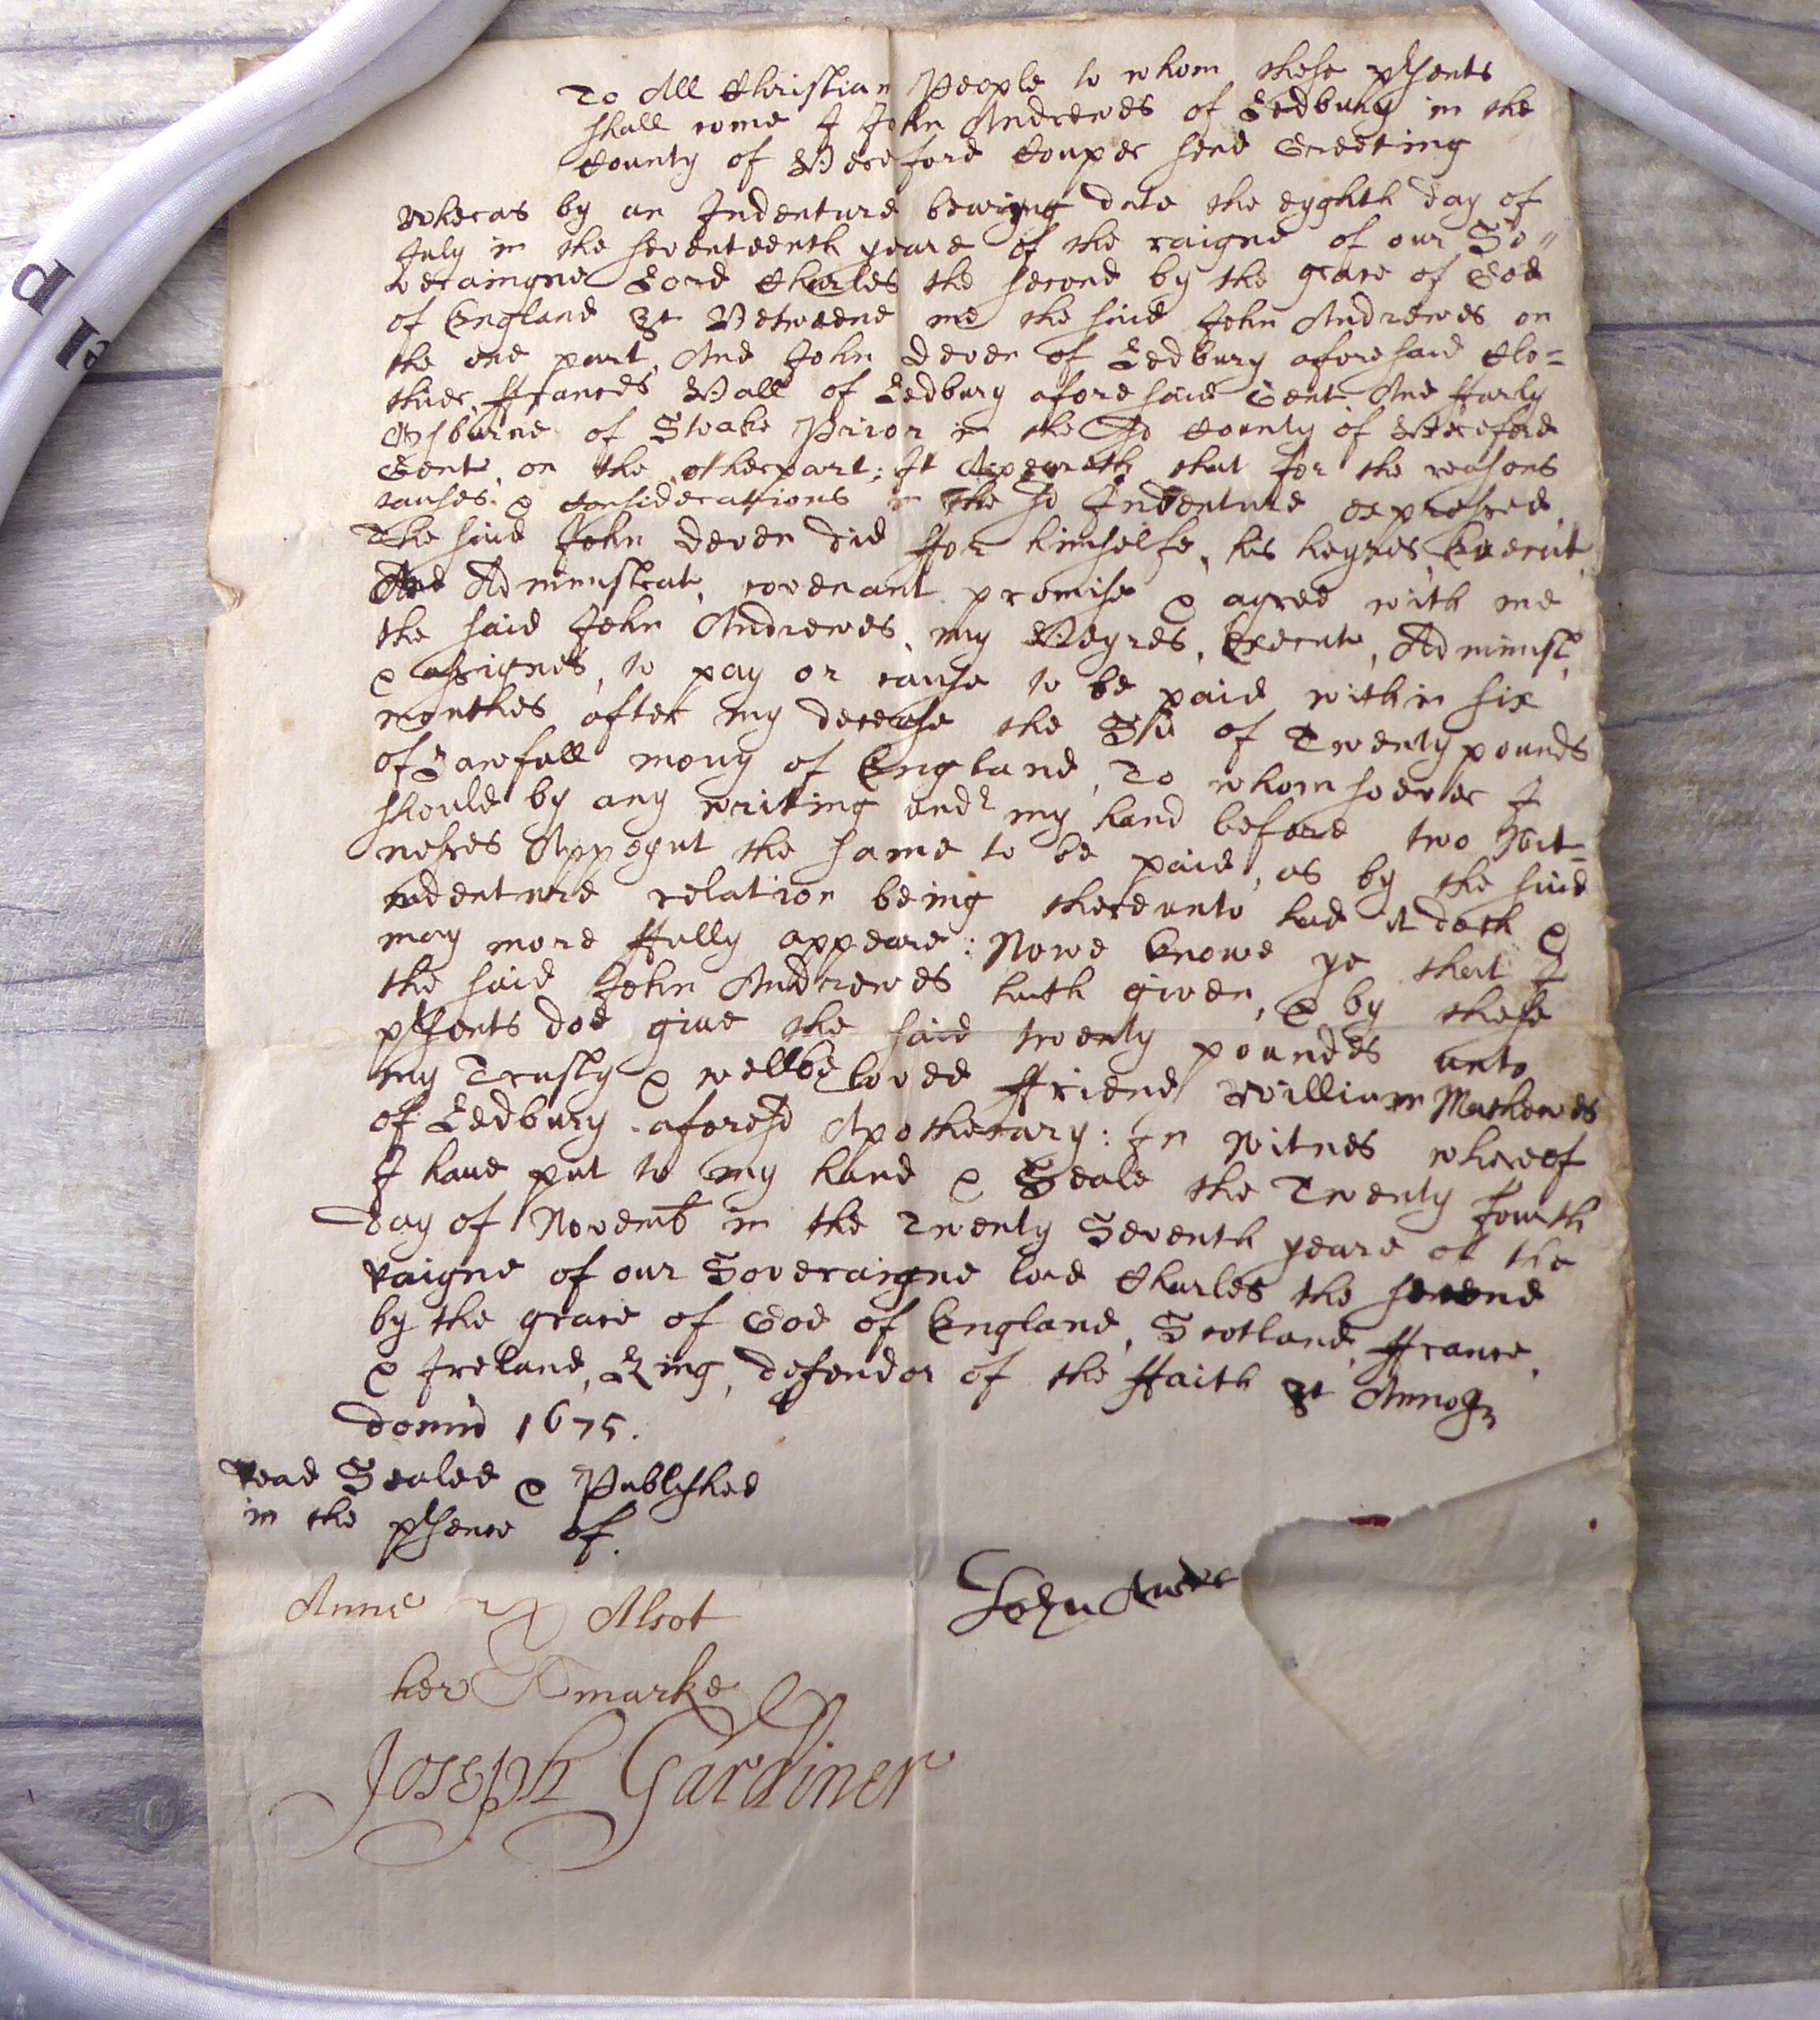 To All Christian People to whom these psents
shall come I John Andrewes of Ledbury in the
County of Hereford Couper send Greeting
Wheras by an Indenture bearing date the eyghth day of
July in the seventeenth yeare of the raigne of our So"
veraingne Lord Charles the second by the grace of God
of England &c Betweene me the said John Andrewes on
the one part, And John Dever of Ledbury aforesaid Clo=
thier, ffrances Hall of Ledbury aforesaid Gent And
of Stoake Prior in the sd County of Hereford
Gent, on the otherpart; It Appeareth that for the reasons
causes & Considerations in the sd Indenture expressed,
The said John Dever did ffor himselfe, his heyres, Execut,
And Administrat, covenant promise & agree with me
the said John Andrewes, my Heyres, Execut, Administ,
& assignes, to pay or cause to be paid within six
monthes after my decease the Su of Twenty pounds
of Lawfull mony of England, To whomsoever I
should by any writing undr my hand before two Wit=
nesses Appoynt the same to be paid, as by the said
indenture relation being thereunto had it doth &
may more ffully appeare: Nowe knowe ye that I
the said John Andrewes hath given, & by these
psents doe give the said twenty poundes unto
my Trusty & wellbeloved ffriend William Mathewes
of Ledbury aforesd Apothecary: In Witnes whereof
I have put to my hand & Seale the Twenty fourth
day of Novemb in the Twenty Seventh yeare of the
raigne of our Soveraigne lord Charles the second
by the grace of God of England, Scotland, ffrance,
& Ireland, King, defendor of the ffaith &c Annoq
domid 1675.
Read Sealed & Published
in the psence of.
John
Anne Alcot
her marke
Joseph Gardiner